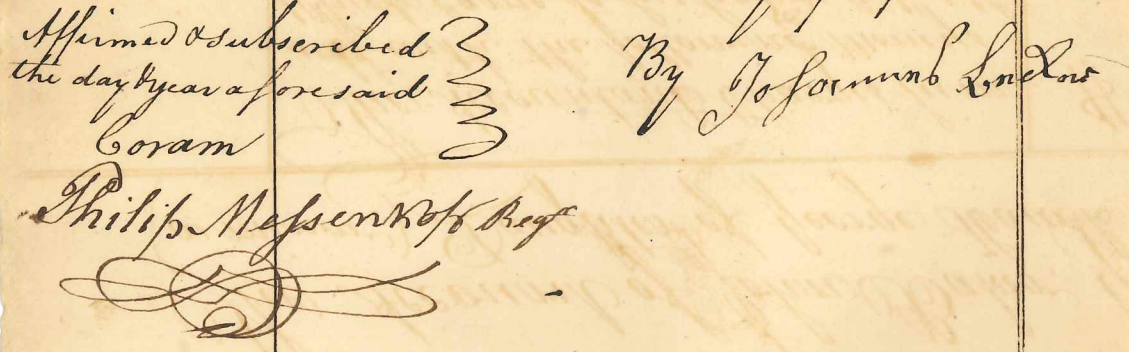 Affirmed & subscribed
the day & year aforesaid
Coram
Philip Messenkop Regr
By Johannes